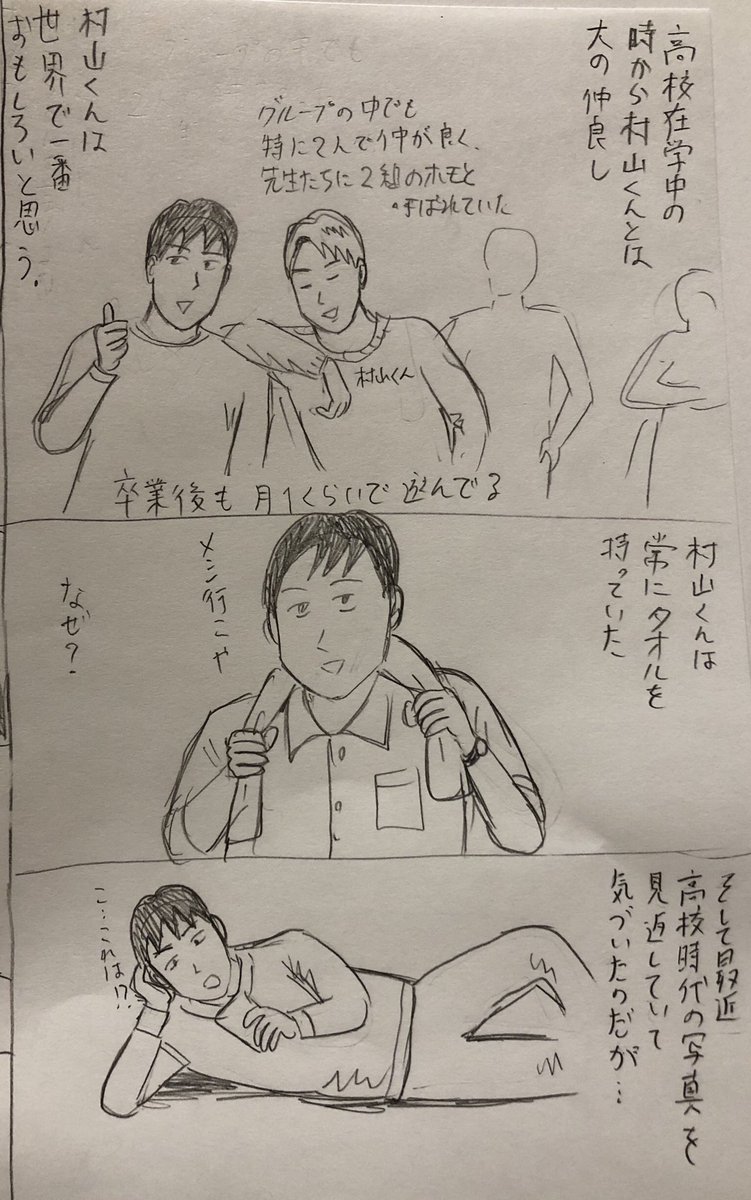 高校在学中の
時から村山くんとは
大の仲良し
グループの中でも
特に2人で仲が良く、
先生たちに2組のホモと
呼ばれていた
村山くんは
世界で一番
おもしろいと思う。
村山くん
卒業後も月1くらいで遊んでる
村山くんは
常にタオルを
持っていた
メシ行こや
なぜ?
そして最近
高校時代の写真を
見返していて
気づいたのだが…
こ…これは!?